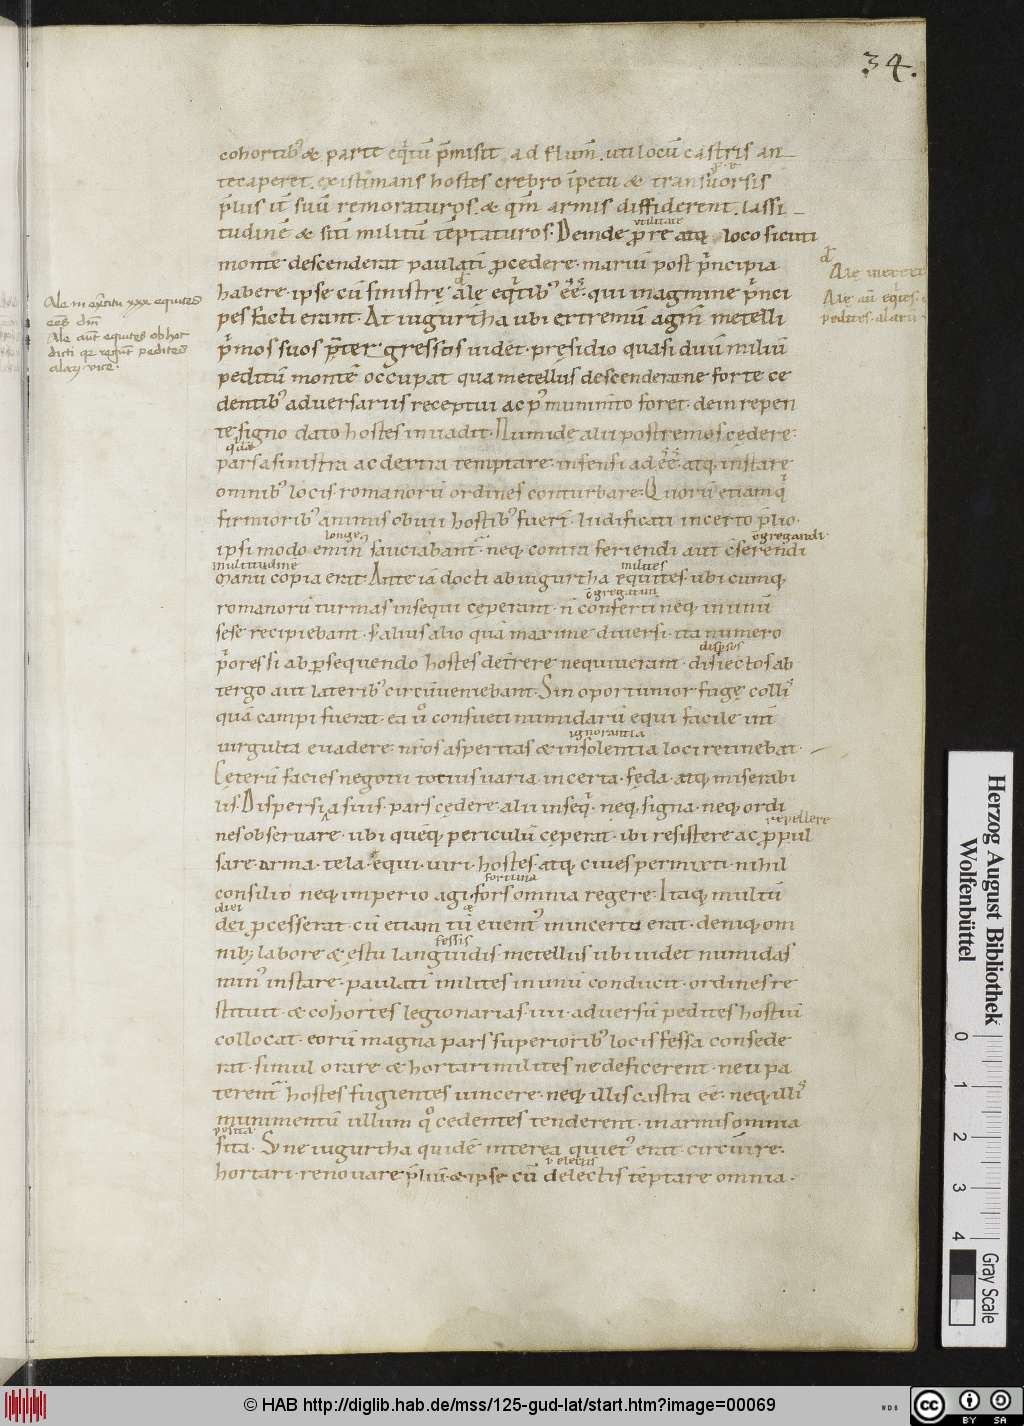 34.
cohortib; & parte eq̄tū p̄misit ad flum̄ uti locū castris an
tecaperet. existimans hostes crebro īpetu & transuorsis
p̄liis it̄ suū remoraturos. & qm̄ armis diffiderent. lassi
tudinē & sitī militū tēptaturos. Deinde pro re atq; loco sicuti
monte descenderat paulatī procedere. mariū post p̄ncipia
habere. ipse cū sinistrę alę eq̄tib; ēē. qui in agmine p̄nci
pes facti erant. At iugurtha ubi extremū agm̄ metelli
p̄mos suos p̄tergressos uidet. pręsidio quasi duū miliū
peditū montē occupat qua metellus descenderat ne forte ce
dentib; aduersariis receptui ac p; munim̄to foret. dein repen
te signo dato hostes inuadit. Numidę alii postremos cędere.
pars a sinistra ac dextra temptare. infensi adēē. atq; instare
omnib; locis romanorū ordines conturbare. Quorū etiam q̄
firmiorib; animis obuii hostib; fuerā. ludificati incerto p̄lio.
longe
egregandi
ipsi modo emin; sauciabant. neq; contra feriendi aut cōserendi
multitudine
milites
manū copia erat. Ante iā docti ab iugurtha equites. ubi cumq;
romanorū turmas insequi cęperant. n̄ conferti neq; in unū
sese recipiebant. s; alius alio quā maxime diuersi. ita numero
disp̄sos
p̄ores si ab persequendo hostes det̄rere nequiuerant. disiectos ab
tergo aut laterib; circūueniebant. Sin oportunior fugę collis
quā campi fuerat. ea ū consueti numidarū equi facile int̄
ignorantia
uirgulta euadere. nr̄os asperitas & insolentia loci retinebat.
Ceterū facies negotii totius uaria. incerta. fęda. atq; miserabi
lis. Dispersi a suis. pars cędere alii inseq̄. neq; signa. neq; ordi
repellere
nes obseruare. ubi quēq; periculū cęperat. ibi resistere ac propul
sare. arma. tela. equi. uiri. hostes. atq; ciues permixti. nihil
fortuna
consilio neq; imperio agi. fors omnia regere. Itaq; multū
diei
dei processerat. cū etiam tū euent; in incerto erat. deniq; om
fessis
nib; labore & ęstu languidis. metellus ubi uidet numidas
min; instare. paulatī milites in unū conducit. ordines re
stituit. & cohortes legionarias. iiii. aduersū pedites hostiū
collocat. eorū magna pars superiorib; locis fessa consede
rat. simul orare & hortari milites ne deficerent. neu pa
terent̄ hostes fugientes uincere. neq; illis castra ēē. neq; illū
munimentū ullum q̊ cedentes tenderent. in armis omnia
posita
sita. S; ne iugurtha quidē interea quiet; erat. circuire.
electis
hortari. renouare p̄liū. & ipse cū delectis tēptare omnia.
© HAB http://diglib.hab.de/mss/125-gud-lat/start.htm?image=00069
Herzog August Bibliothek
Wolfenbüttel
0 1 2 3 4
Gray Scale
WDB
cc BY SA